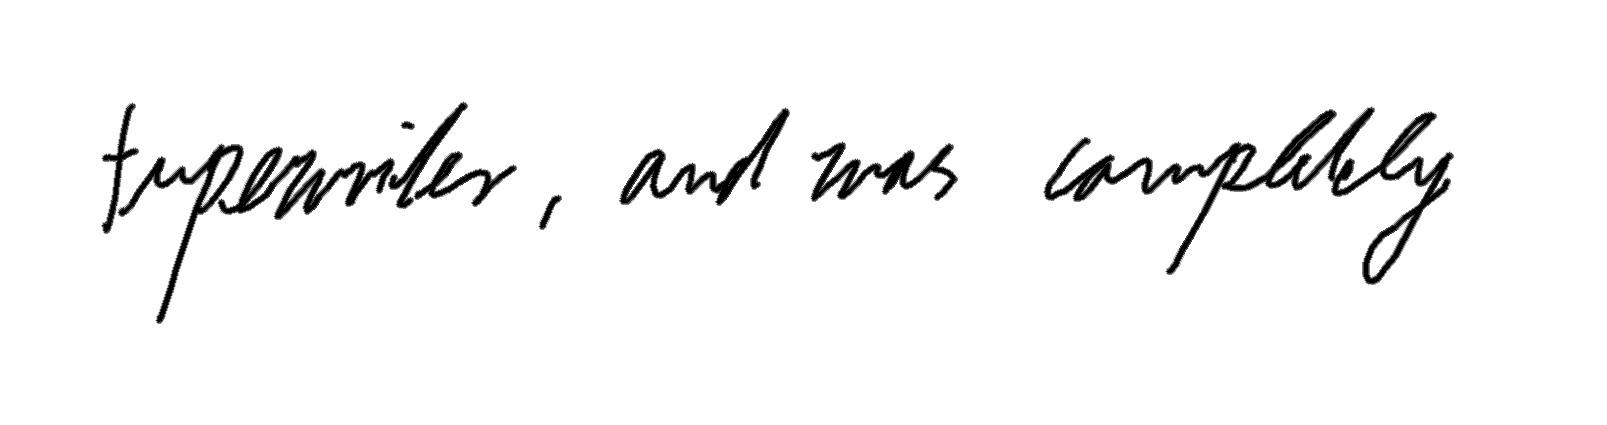 typewriter, and was completely